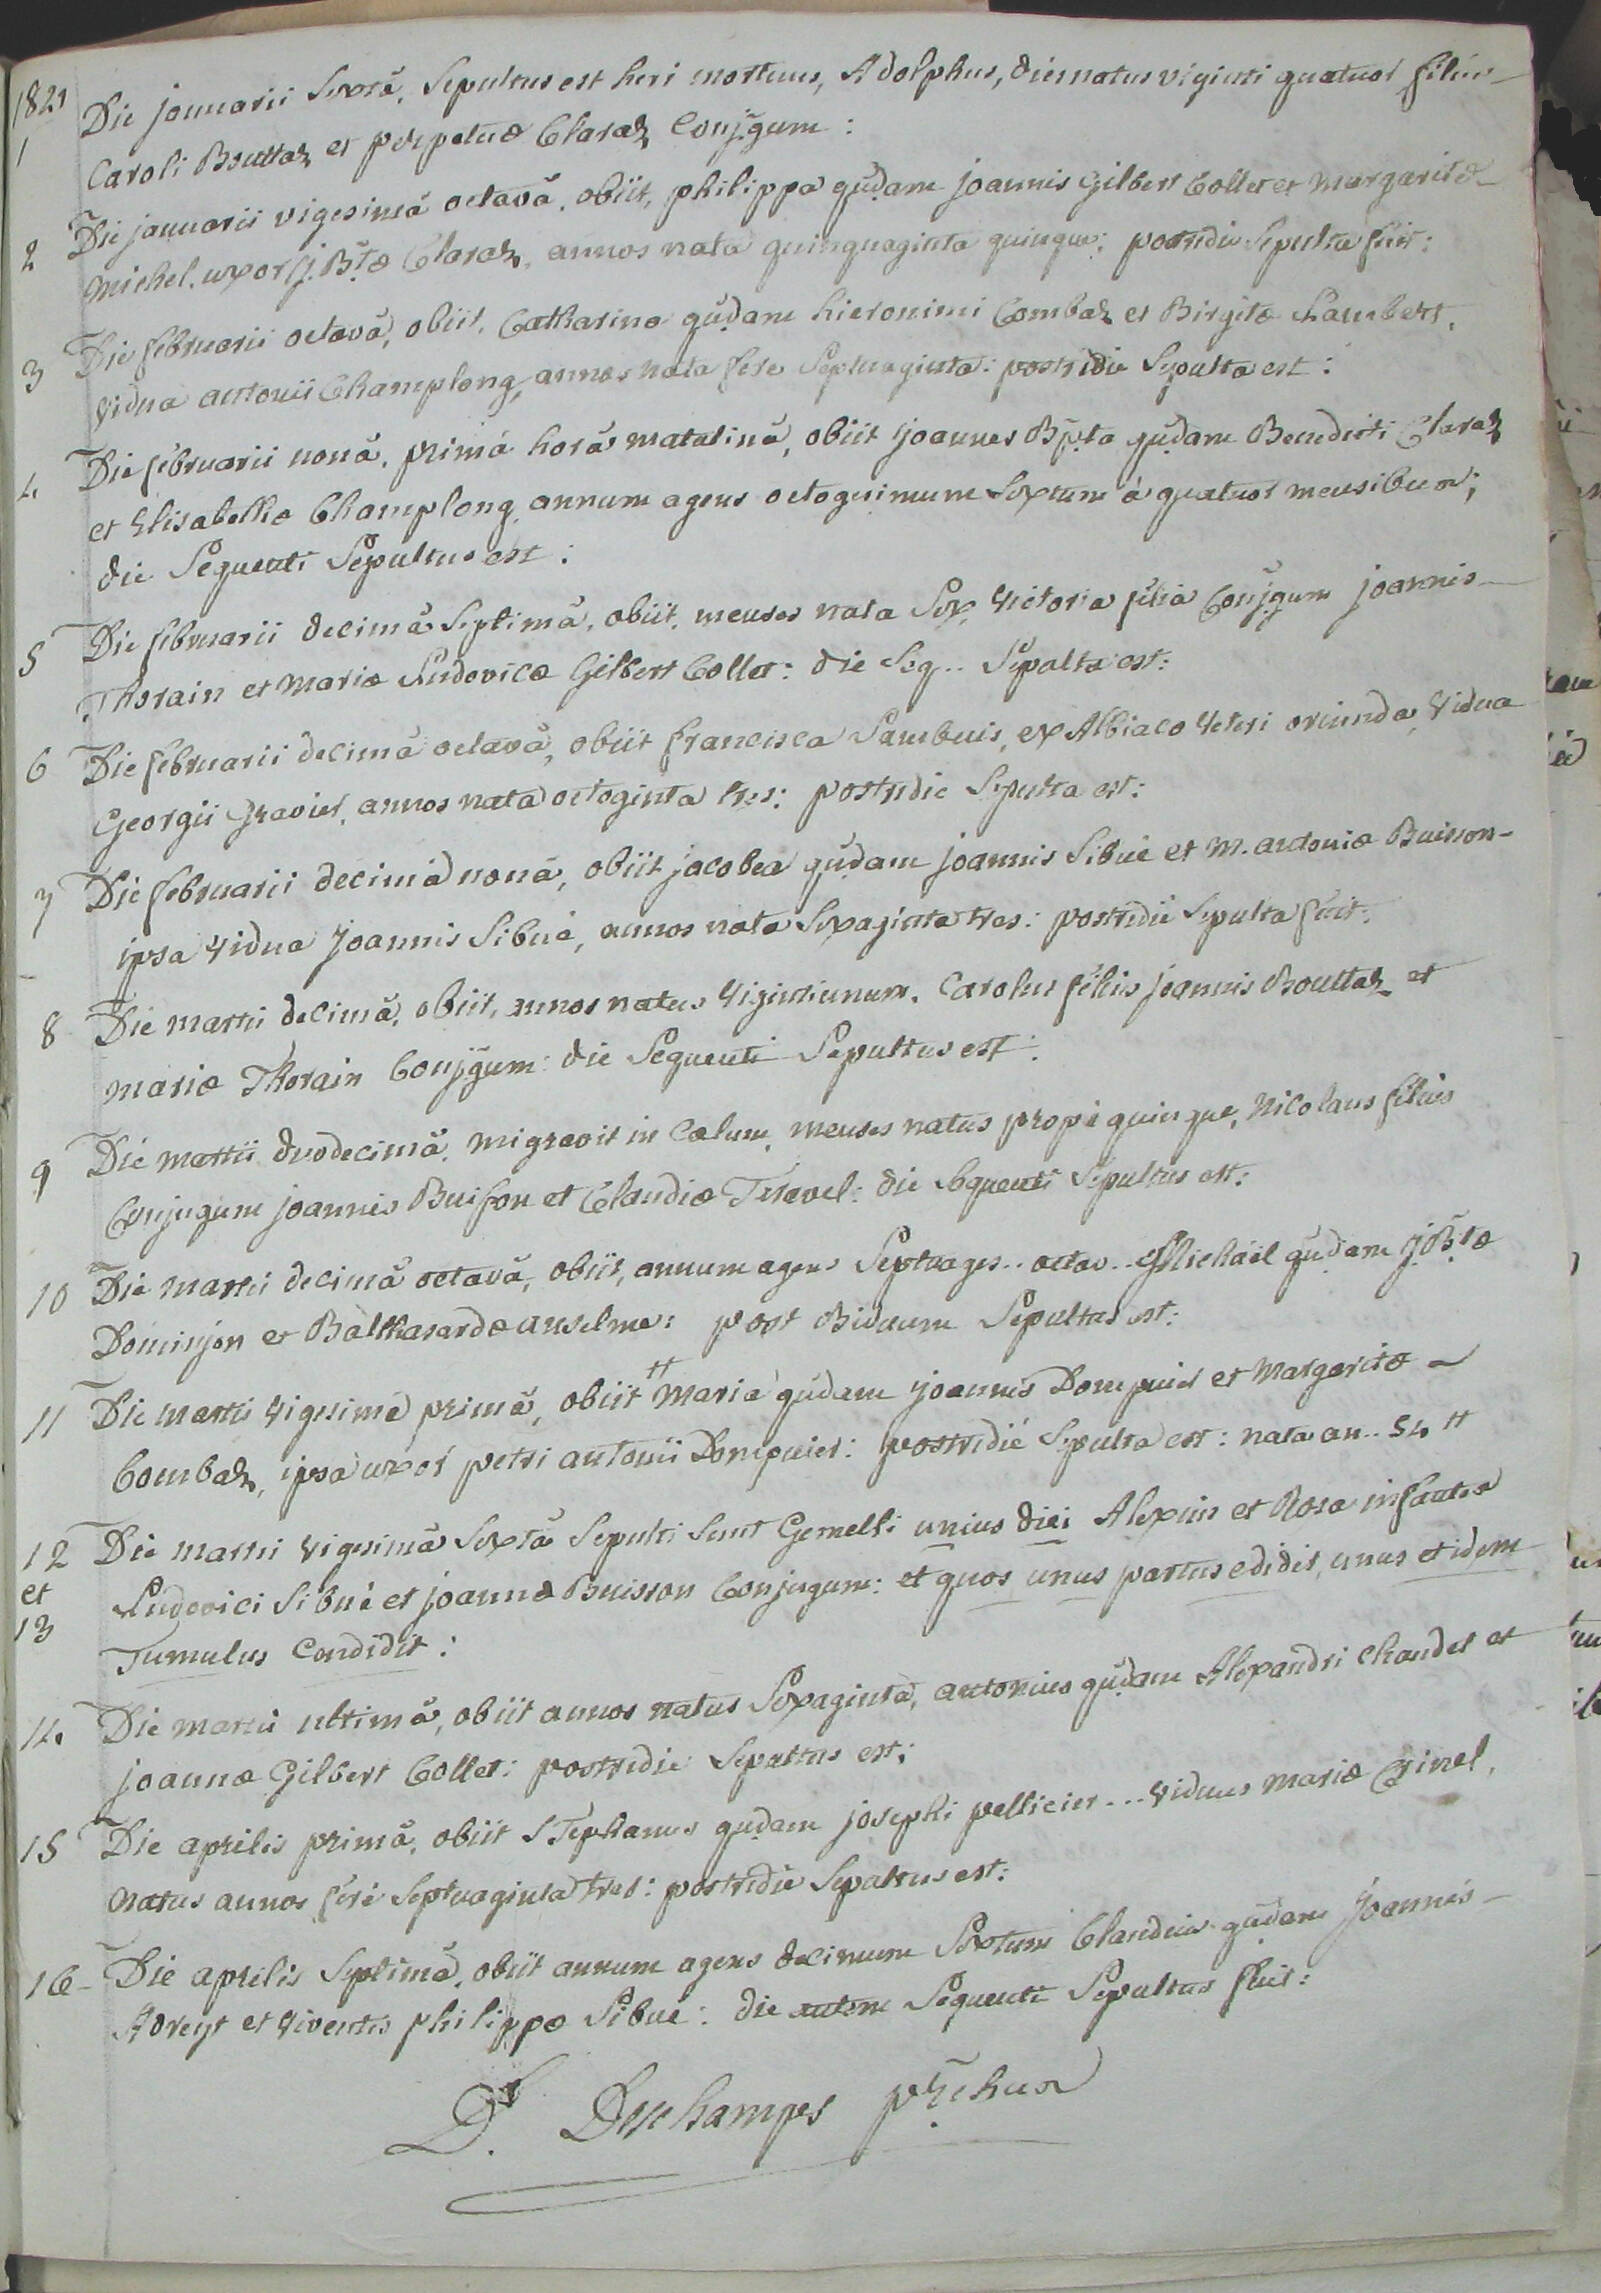 1821
1 Die januarii Sextâ, Sepultus est heri mortuus, Adolphus, dies natus viginti quatuor filius
Caroli Bouttaz et perpetuæ Claraz Conjgum :
2 Die januarii vigesimâ octavâ, obiit, philippa qudam joannis Gilbert Collet et Margaritæ
Michel, uxor j. Btæ Claraz, annos nata quinquaginta quinque; postridie Sepulta fuit :
3 Die februarii octavâ, obiit, Catharina qudam hieronimi Combaz et Birgitæ Lambert,
vidua antonii Champlong, annos nata fere Septuaginta : postridie Sepulta est :
4 Die februarii nonâ, primâ horâ matutinâ, obiit joannes Bpta qudam Benedicti Claraz
et Elisabethæ Champlong, annum agens octogesimum Sextum à quatuor mensibus ;
die Sequenti Sepultus est :
5 Die februarii decimâ Septimâ, obiit, menses nata Sex, Victoria filia Conjgum joannis
Thorain et Mariæ Ludovicæ Gilbert Collet : die Seq.. Sepulta est :
6 Die februarii decimâ octavâ, obiit francisca Sambuis, ex Albiaco Veteri oriunda, Vidua
Georgii Gravier, annos nata octoginta tres : postridie Sepulta est :
7 Die februarii decimâ nonâ, obiit jacobea qudam joannis Sibué et M. antoniæ Buisson
ipsa vidua joannis Sibué, annos nata Sexaginta tres : postridie Sepulta fuit :
8 Die martii decimâ, obiit, annos natus Vigintiunum, Carolus filius joannis Bouttaz et
mariæ Thorain Conjgum : die Sequenti Sepultus est :
9 Die martii duodecimâ, migravit in Cælum, menses natus propè quinque, Nicolaus filius
Conjugum joannis Buisson et Claudiæ Teravel : die Sequenti Sepultus est :
10 Die martii decimâ octavâ, obiit, annum agens Septuages.. octav.. Michaël qudam j. Btæ
Dominjon et Balthasardæ anselme : post Biduum Sepultus est :
11 Die martii vigesimâ primâ, obiit # Maria qudam joannis Dompnier et Margaritæ
Combaz, ipsa uxor petri antonii Dompnier : postridié Sepulta est : nata an.. 54 #
12 et 13 Die martii vigesimâ Sextâ Sepulti Sunt Gemelli unius diei Alexius et Rosa infantes
Ludovici Sibué et joannæ Buisson Conjugum : et quos unus partus edidit, unus et idem
Tumulus Condidit :
14. Die martii ultimâ, obiit annos natus Sexaginta, antonius qudam Alexandri Chandet et
joannæ Gilbert Collet : postridie Sepultus est :
15 Die aprilis primâ, obiit STephanus qudam josephi pellicier ... viduus mariæ Crinel,
Natus annos feré Septuaginta tres : postridie Sepultus est :
16 Die aprilis Septimâ, obiit annum agens decimum Sextum Claudius qudam joannis
Adveyt et viventis philippæ Sibué : die autem Sequenti Sepultus fuit :
Dr. Deschamps